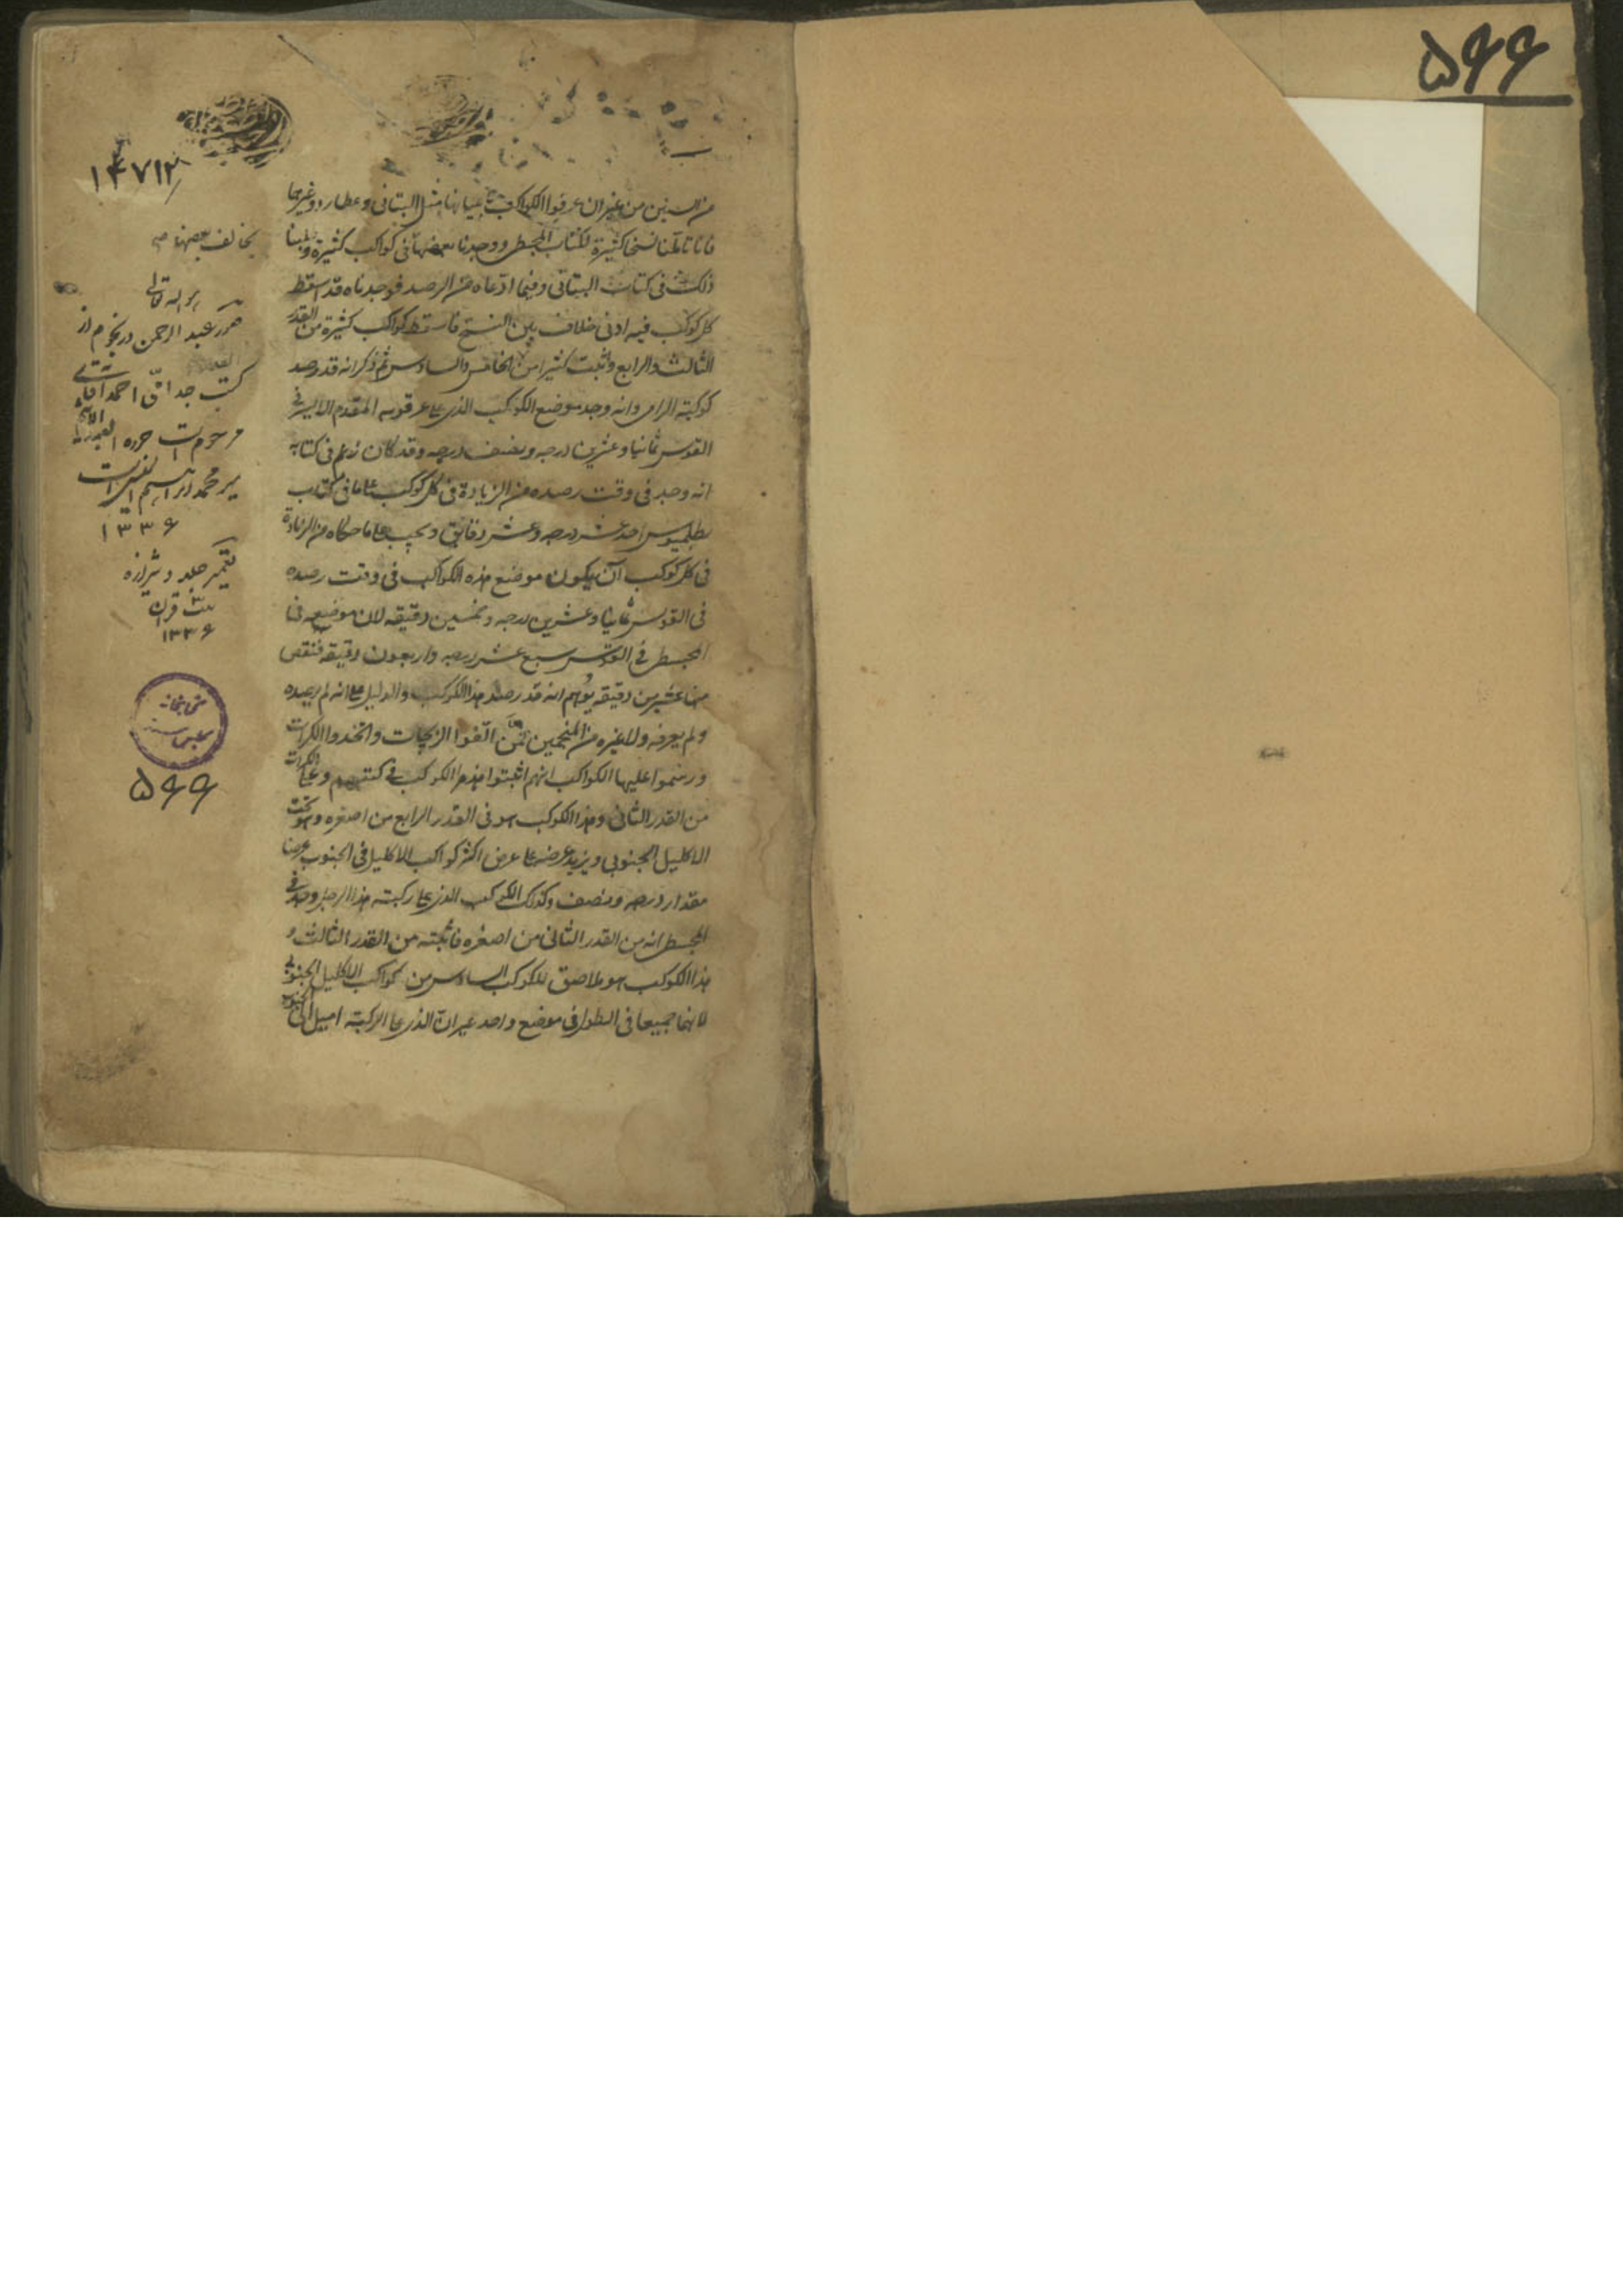 ۵۶۶
من السنين من غير ان عرفوا الكواكب باعيانها مثل البتانى وعطارد وغيرهما
فانا تأملنا نسخا كثيرة لكتاب المجسطى ووجدنا بعضها فى كواكب كثيرة
ذلك فى كتاب البتانى وفيما ادعاه من الرصد فوجدناه قد اسقط
كل كوكب فيه ادنى خلاف بين النسخ فاسقط كواكب كثيرة من القدر
الثالث والرابع واثبت كثيرا من الخامس والسادس ثم ذكر انه قد رصد
كوكبة الرامى وانه وجد موضع الكوكب الذى على عرقوبه المقدم الايسر فى
القوس ثمانيا وعشرين درجه ونصف درجه وقد كان زعم فى كتابه
انه وجد فى وقت رصده من الزيادة فى كل كوكب على ما فى كتاب
بطلميوس احد عشر درجه وعشر دقايق ويجب على ما حكاه من الزيادة
فى كل كوكب ان يكون موضع هذه الكواكب فى وقت رصده
فى القوس ثمانيا وعشرين درجه وخمسين دقيقه لان موضعه فى
المجسطى فى القوس سبع عشر درجه واربعون دقيقه فنقص
منها عشرين دقيقه يوهم انه قد رصد هذا الكوكب والدليل على انه لم يرصده
ولم يعرفه ولا غيره من المنجمين ممن الفوا الزيجات واتخذوا الكرات
ورسموا عليها الكواكب انهم اثبتوا هذا الكوكب فى كتبهم وعلى الكرات
من القدر الثانى وهذا الكوكب هو فى القدر الرابع من اصغره وهو تحت
الاكليل الجنوبى ويزيد عرضه على عرض اكثر كواكب الاكليل فى الجنوب عرضا
مقدار درجه ونصف وكذلك الكوكب الذى على ركبته هذا الرجل وجد فى
المجسطى انه من القدر الثانى من اصغره فاثبته من القدر الثالث و
هذا الكوكب هو ملاصق للكوكب السادس من كواكب الاكليل الجنوبى
لانهما جميعا فى الطول فى موضع واحد غير ان الذى على الركبة اميل الى الجنوب
۱۴۷۱۲
يخالف بعضها
صور عبد الرحمن در نجوم از
كتب احمد
مرحوم است
مير محمد ابراهيم
۱۳۳۶
تعمير جلد و شيرازه
قران
۱۳۳۶
كتابخانه
مجلس
۵۶۶